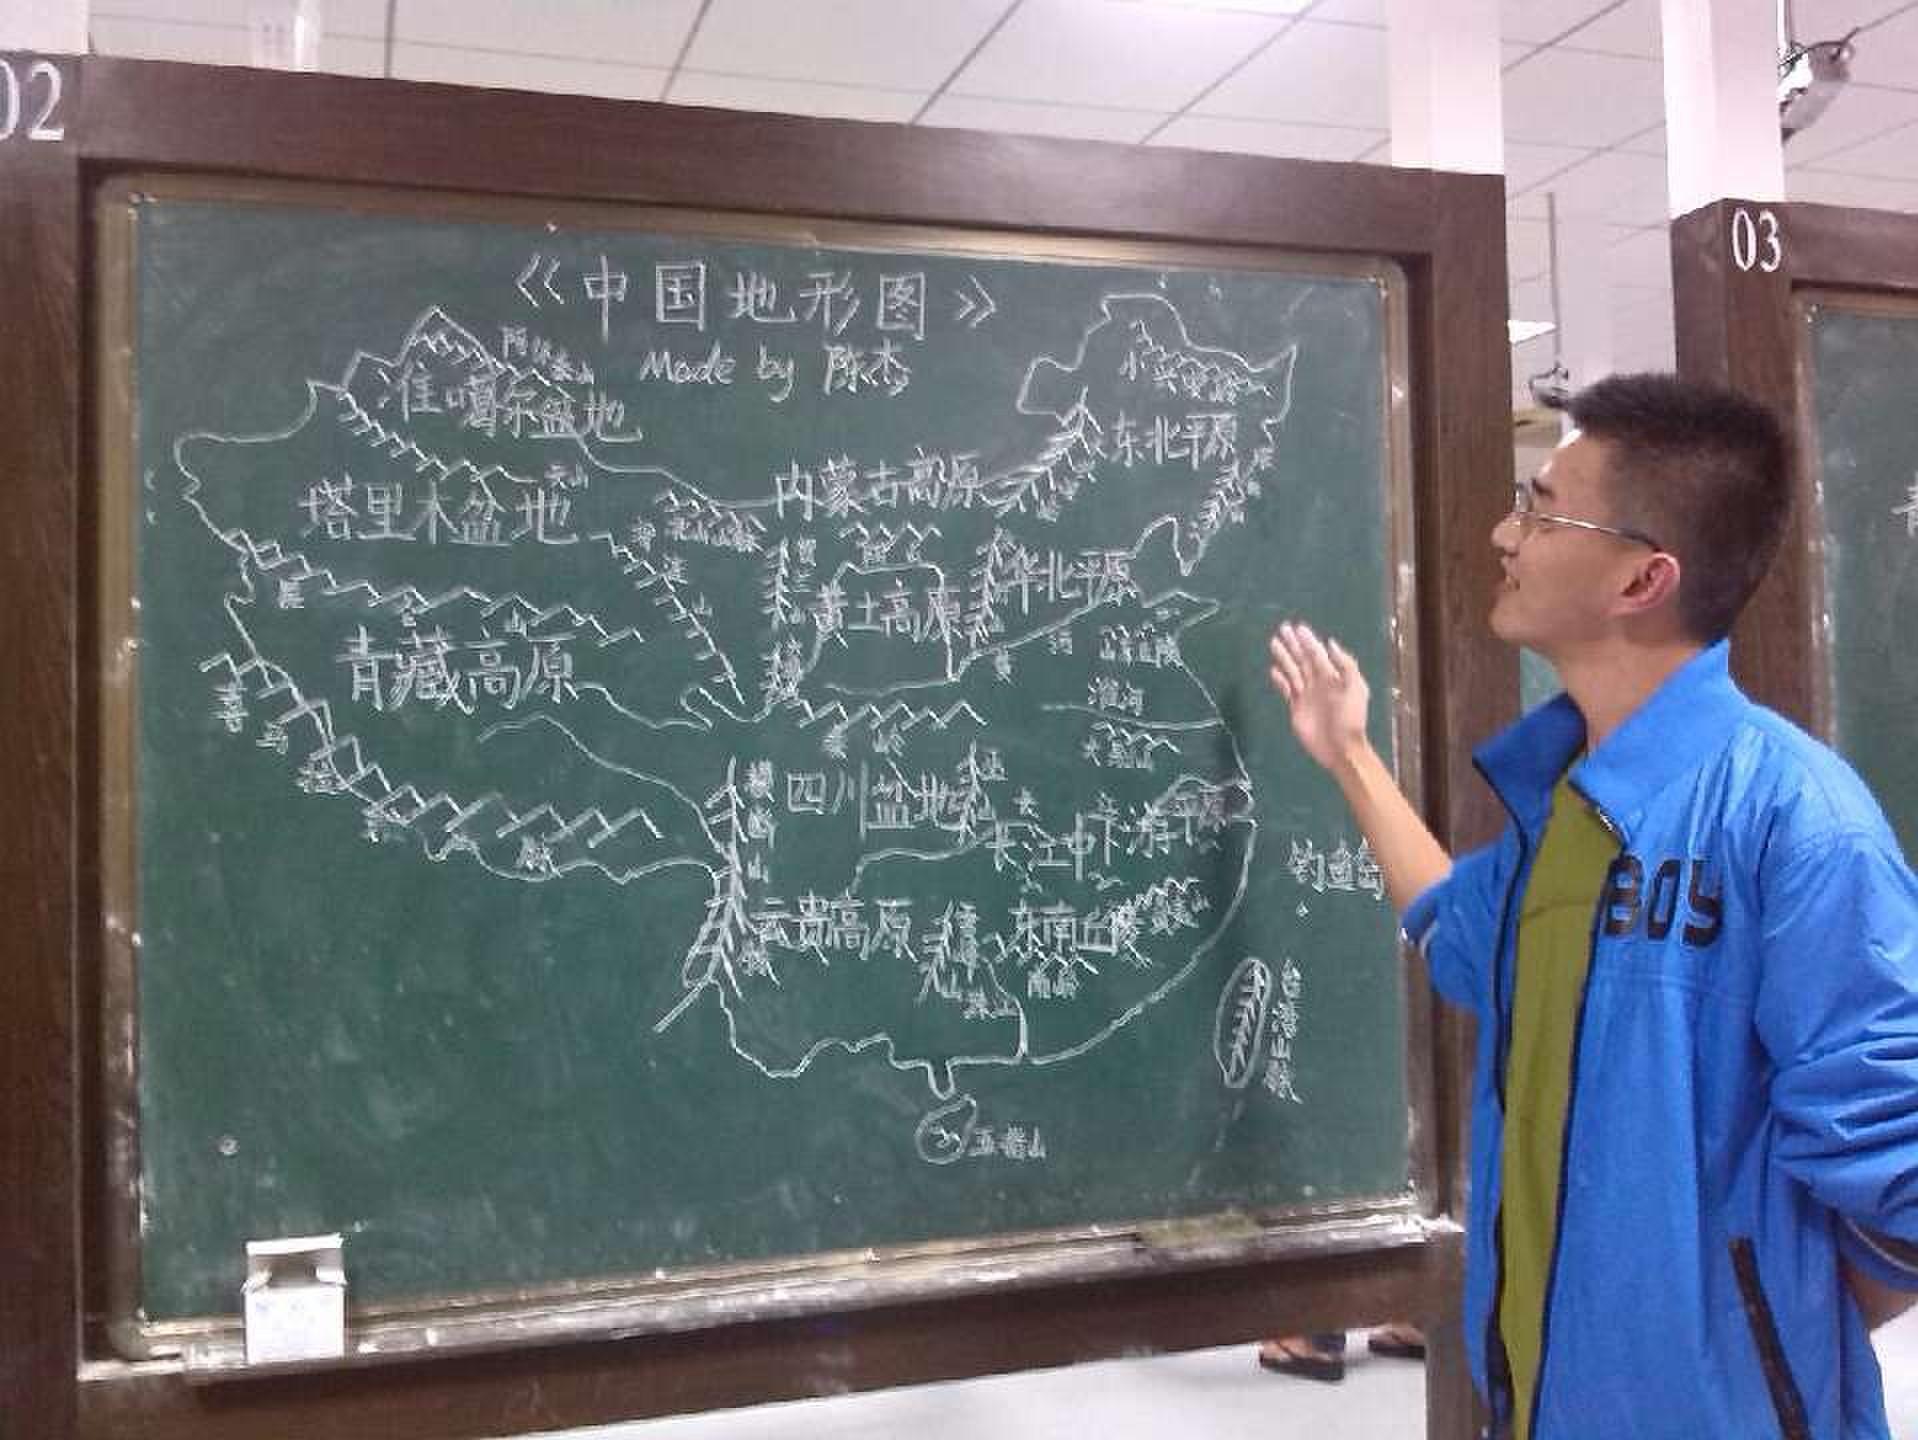 02
03
《中国地形图》
Made by 陈杰
阿尔泰山
小兴安岭
准噶尔盆地
东北平原
内蒙古高原
塔里木盆地
天山
祁连山
华北平原
黄土高原
昆仑山
青藏高原
黄河
淮河
大别山
秦岭
喜马拉雅
四川盆地
巫山
横断山
长江中下游平原
钓鱼岛
云贵高原
东南丘陵
武夷山
南岭
珠江
台湾山脉
五指山
BOY